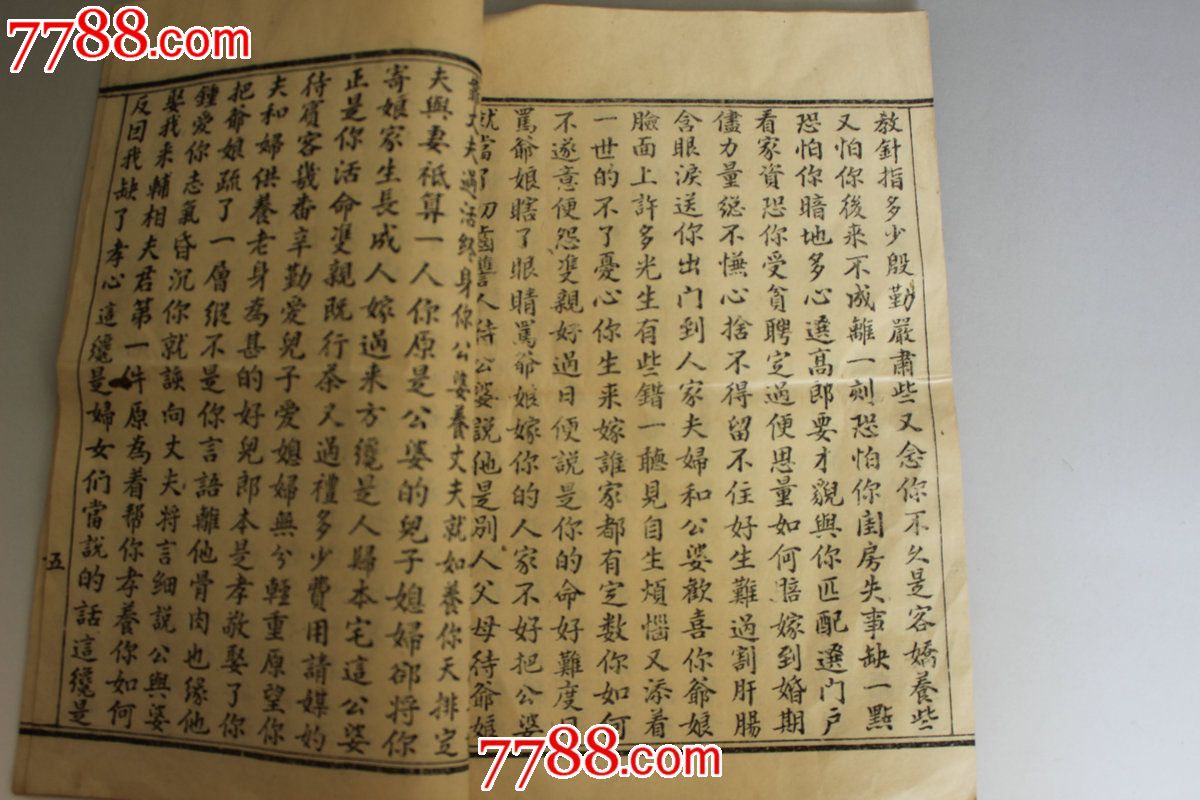 7788.com
7788.com
教針指多少殷勤嚴肅些又念你不久是客嬌養些
又怕你後來不成離一刻恐怕你閨房失事缺一點
恐怕你暗地多心選高郎要才貌與你匹配選門戶
看家資恐你受貧聘定過便思量如何賠嫁到婚期
儘力量總不慊心捨不得留不住好生難過割肝腸
含眼淚送你出門到人家夫婦和公婆歡喜你爺娘
臉面上許多光生有些錯一聽見自生煩惱又添着
一世的不了憂心你生来嫁誰家都有定数你如何
不遂意便怨雙親好過日便說是你的命好難度日
罵爺娘瞎了眼睛罵爺娘嫁你的人家不好把公婆
就當了切齒讐人待公婆說他是別人父母待爺娘
靠丈夫過活終身你公婆養丈夫就如養你天排定
夫與妻祗算一人你原是公婆的兒子媳婦卻將你
寄娘家生長成人嫁過来方纔是人歸本宅這公婆
正是你活命雙親既行茶又過禮多少費用請媒妁
待賓客幾番辛勤愛兒子愛媳婦無分輕重原望你
夫和婦供養老身為甚的好兒郎本是孝敬娶了你
把爺娘疏了一層縱不是你言語離他骨肉也緣他
鍾愛你志氣昏沉你就該向丈夫將言細說公與婆
娶我来輔相夫君第一件原為着帮你孝養你如何
反因我缺了孝心這纔是婦女們當說的話這纔是
五
7788.com
7788.com